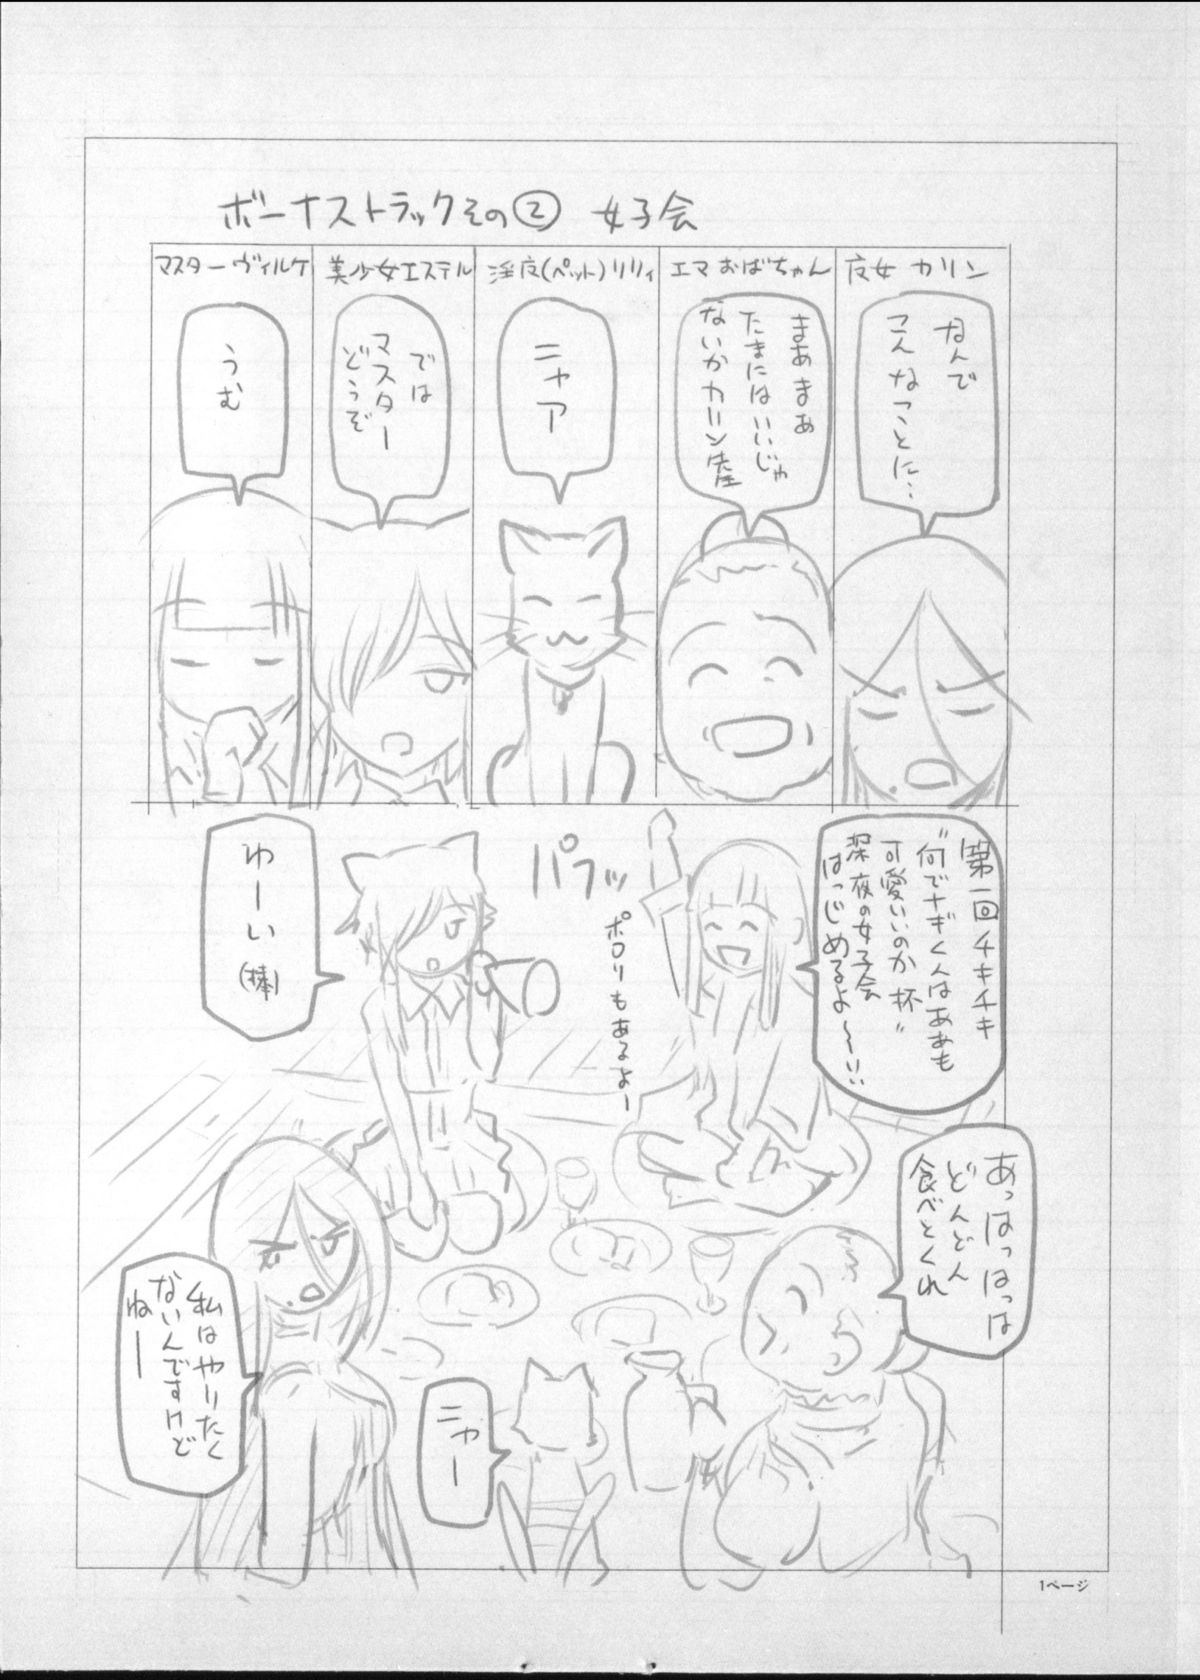 ボーナストラックその② 女子会
夜女 カリン
なんで
こんなことに…
エマおばちゃん
まあまあ
たまにはいいじゃ
ないかカリン達
淫夜(ペット)リリィ
ニャア
美少女エステル
では
マスター
どうぞ
マスターヴィルケ
うむ
第一回チキチキ
“何でナギくんはああも
可愛いいのか杯”
深夜の女子会
はっじめるよ〜〜!!
パフッ
ポロリもあるよー
わーい
(棒)
あっはっはっは
どんどん
食べとくれ
私はやりたく
ないんですけど
ねー
ニャー
1ページ